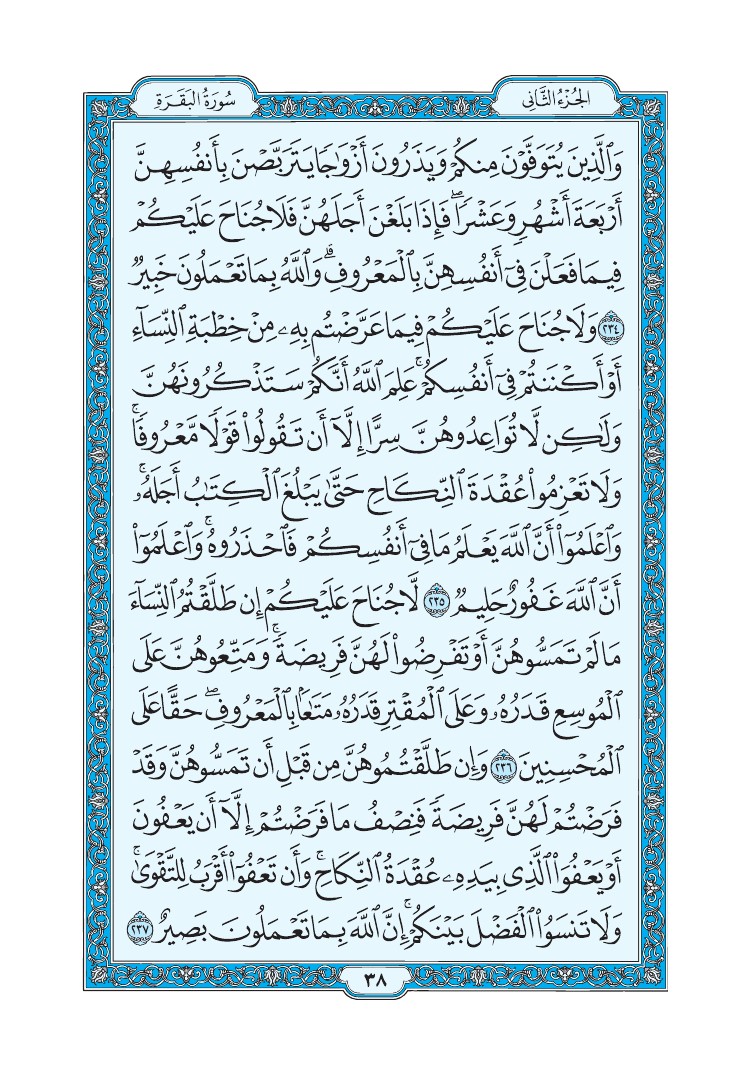 الجزء الثاني
سورة البقرة
وَٱلَّذِينَ يُتَوَفَّوْنَ مِنكُمْ وَيَذَرُونَ أَزْوَٰجًا يَتَرَبَّصْنَ بِأَنفُسِهِنَّ
أَرْبَعَةَ أَشْهُرٍ وَعَشْرًا ۖ فَإِذَا بَلَغْنَ أَجَلَهُنَّ فَلَا جُنَاحَ عَلَيْكُمْ
فِيمَا فَعَلْنَ فِىٓ أَنفُسِهِنَّ بِٱلْمَعْرُوفِ ۗ وَٱللَّهُ بِمَا تَعْمَلُونَ خَبِيرٌ
٢٣٤ وَلَا جُنَاحَ عَلَيْكُمْ فِيمَا عَرَّضْتُم بِهِۦ مِنْ خِطْبَةِ ٱلنِّسَآءِ
أَوْ أَكْنَنتُمْ فِىٓ أَنفُسِكُمْ ۚ عَلِمَ ٱللَّهُ أَنَّكُمْ سَتَذْكُرُونَهُنَّ
وَلَٰكِن لَّا تُوَاعِدُوهُنَّ سِرًّا إِلَّآ أَن تَقُولُوا۟ قَوْلًا مَّعْرُوفًا ۚ
وَلَا تَعْزِمُوا۟ عُقْدَةَ ٱلنِّكَاحِ حَتَّىٰ يَبْلُغَ ٱلْكِتَٰبُ أَجَلَهُۥ ۚ
وَٱعْلَمُوٓا۟ أَنَّ ٱللَّهَ يَعْلَمُ مَا فِىٓ أَنفُسِكُمْ فَٱحْذَرُوهُ ۚ وَٱعْلَمُوٓا۟
أَنَّ ٱللَّهَ غَفُورٌ حَلِيمٌ ٢٣٥ لَّا جُنَاحَ عَلَيْكُمْ إِن طَلَّقْتُمُ ٱلنِّسَآءَ
مَا لَمْ تَمَسُّوهُنَّ أَوْ تَفْرِضُوا۟ لَهُنَّ فَرِيضَةً ۚ وَمَتِّعُوهُنَّ عَلَى
ٱلْمُوسِعِ قَدَرُهُۥ وَعَلَى ٱلْمُقْتِرِ قَدَرُهُۥ مَتَٰعًۢا بِٱلْمَعْرُوفِ ۖ حَقًّا عَلَى
ٱلْمُحْسِنِينَ ٢٣٦ وَإِن طَلَّقْتُمُوهُنَّ مِن قَبْلِ أَن تَمَسُّوهُنَّ وَقَدْ
فَرَضْتُمْ لَهُنَّ فَرِيضَةً فَنِصْفُ مَا فَرَضْتُمْ إِلَّآ أَن يَعْفُونَ
أَوْ يَعْفُوَا۟ ٱلَّذِى بِيَدِهِۦ عُقْدَةُ ٱلنِّكَاحِ ۚ وَأَن تَعْفُوٓا۟ أَقْرَبُ لِلتَّقْوَىٰ ۚ
وَلَا تَنسَوُا۟ ٱلْفَضْلَ بَيْنَكُمْ ۚ إِنَّ ٱللَّهَ بِمَا تَعْمَلُونَ بَصِيرٌ ٢٣٧
٣٨